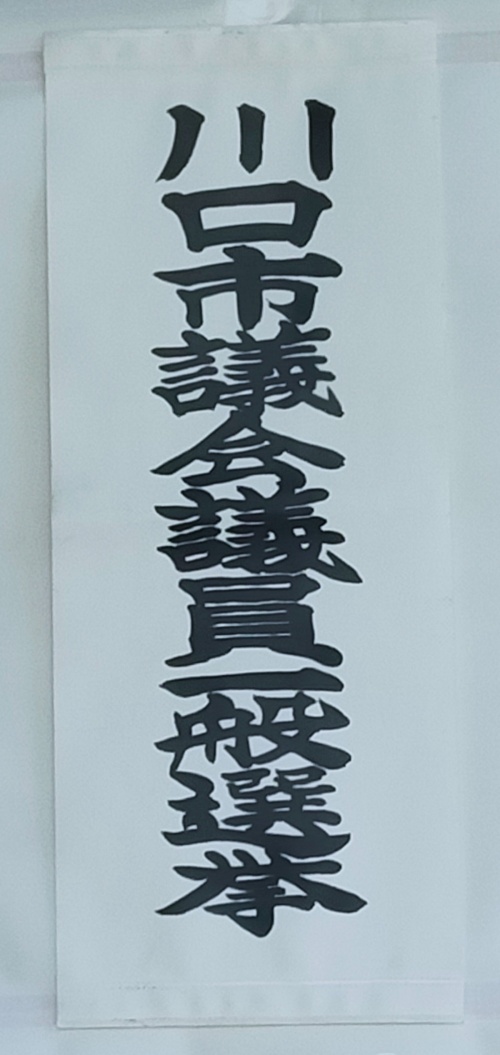 川口市議会議員一般選挙